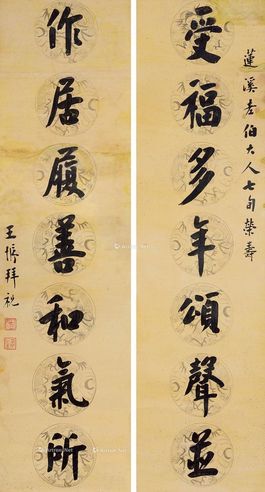 蓮溪老伯大人七旬榮壽
受福多年頌聲並
作居履善和氣所
王樨拜祝